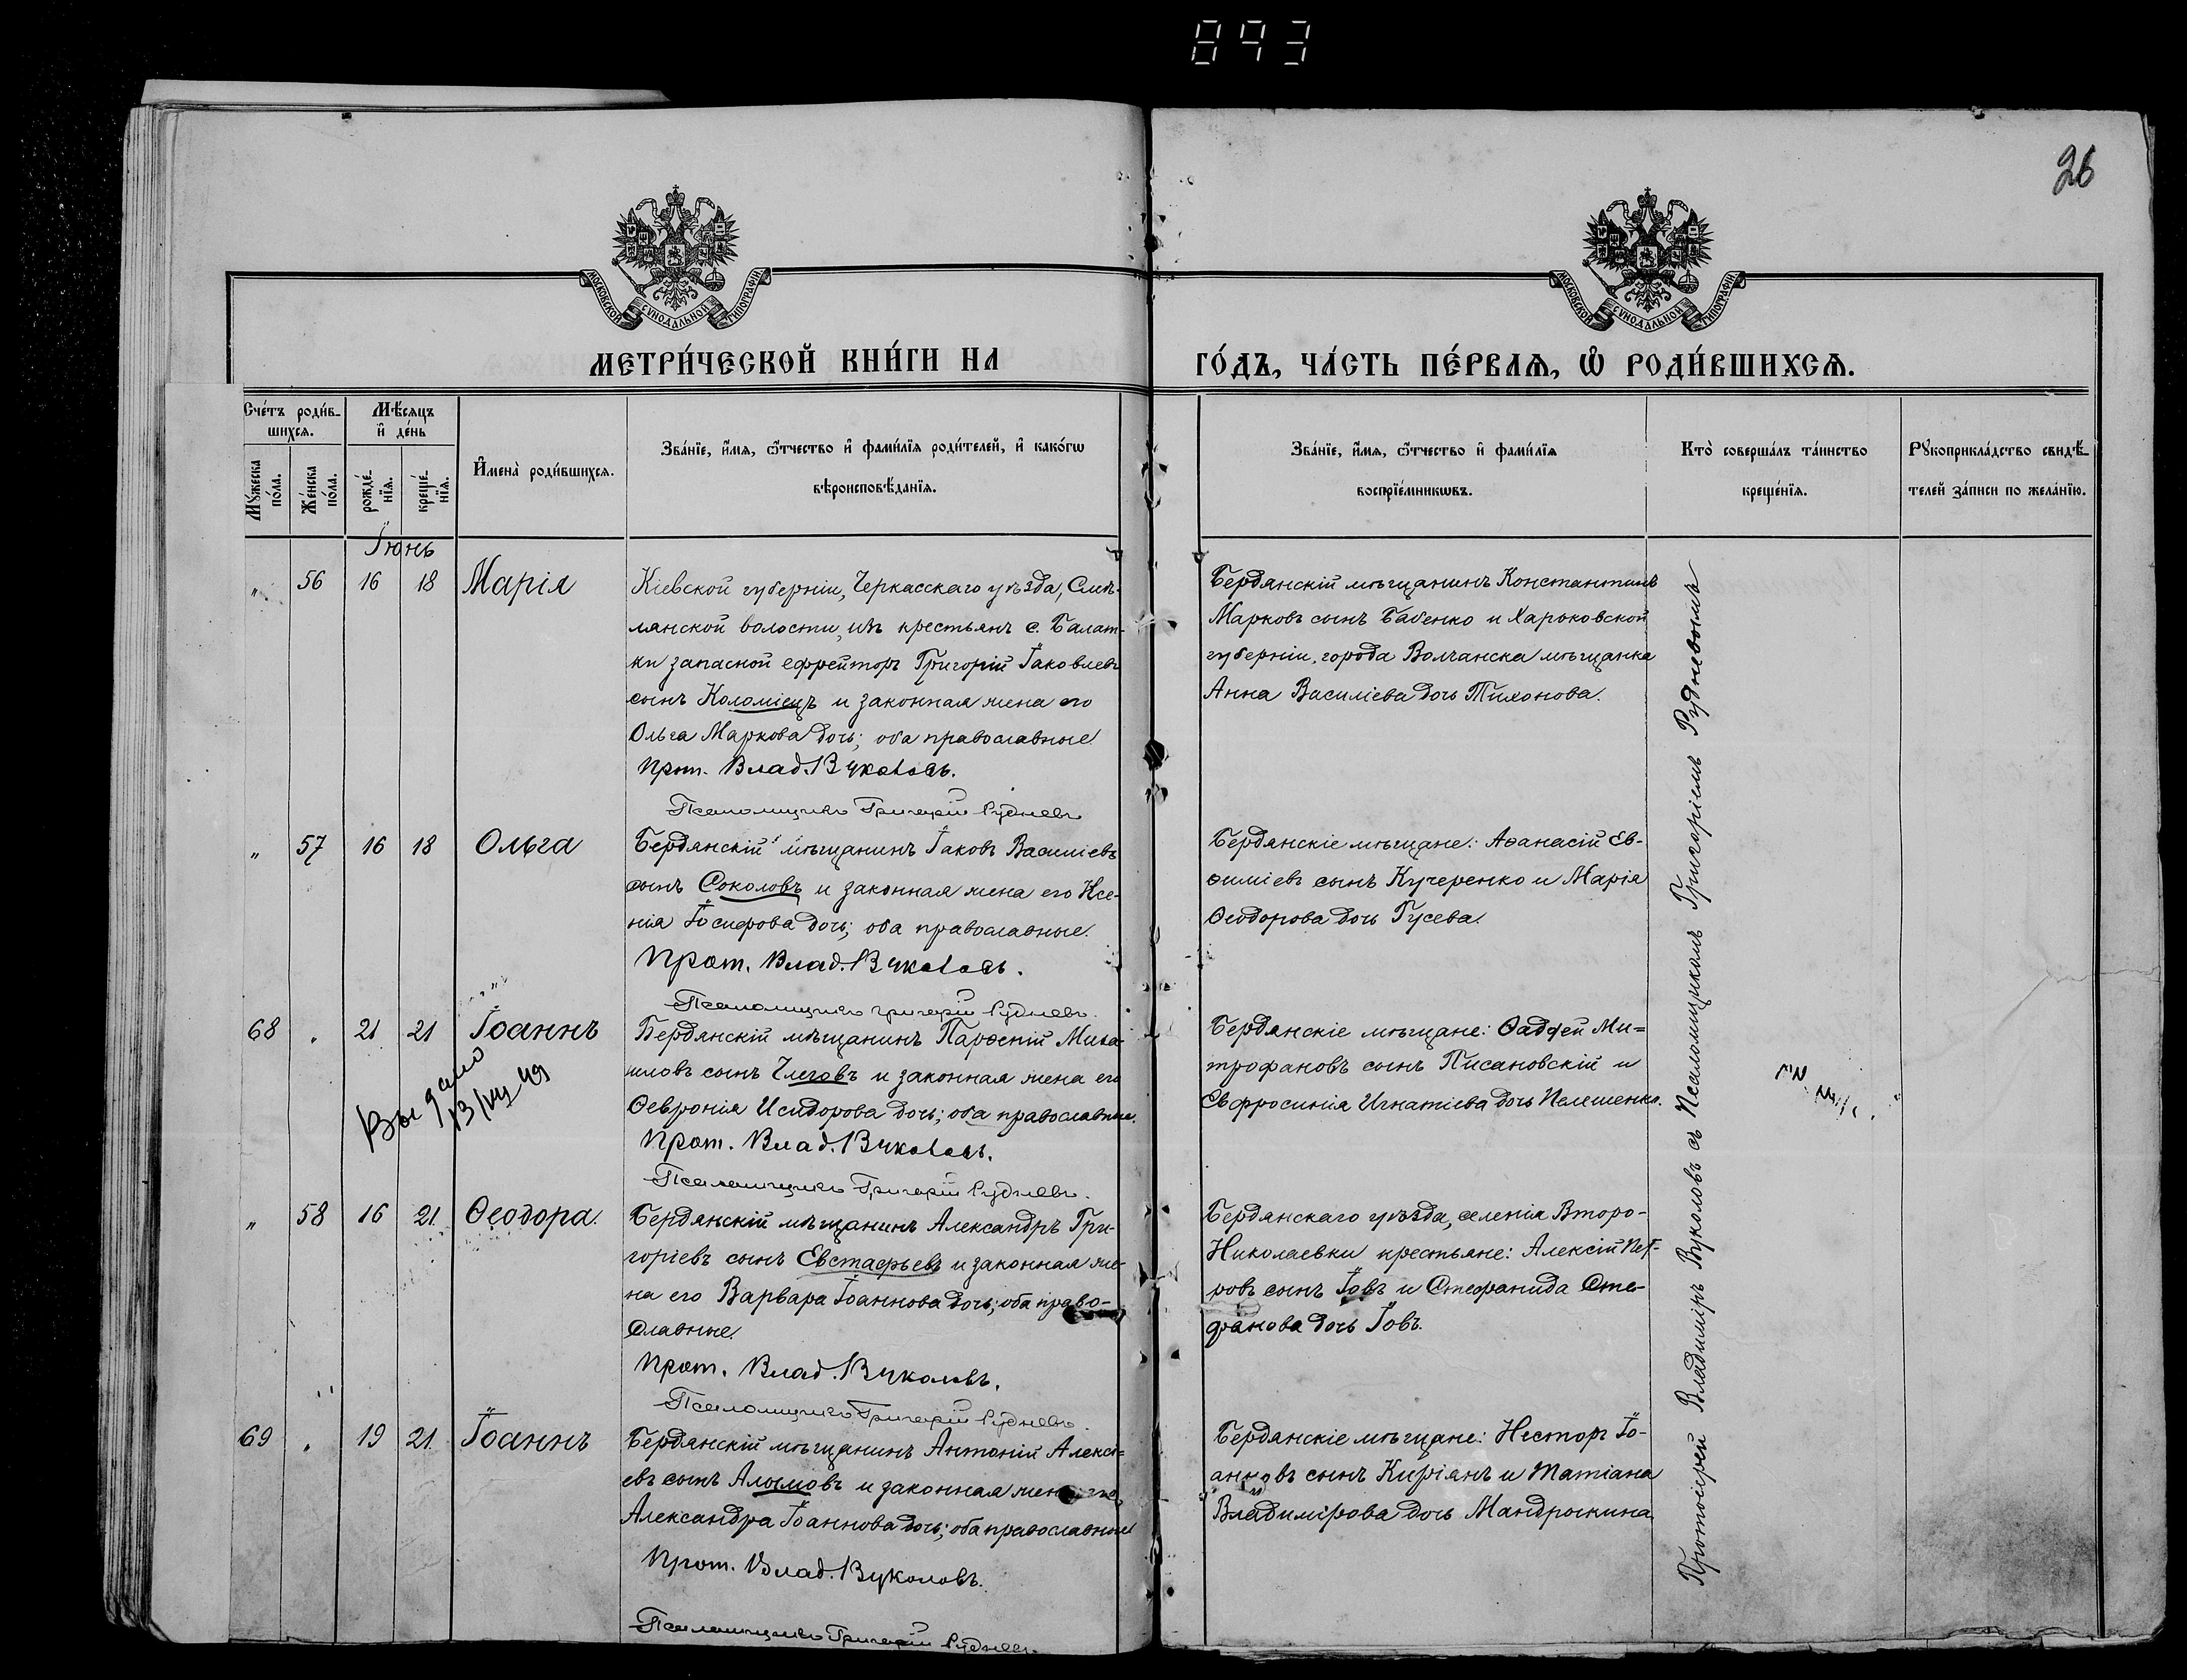 893
26
МОСКОВСКОЙ СѴНОДАЛЬНОЙ ТИПОГРАФІИ
МОСКОВСКОЙ СѴНОДАЛЬНОЙ ТИПОГРАФІИ
МЕТРИ́ЧЕСКОЙ КНИ́ГИ НА
ГО́ДЪ, ЧА́СТЬ ПЕ́РВАѦ, Ѡ҆ РОДИ́ВШИХСѦ.
Сче́тъ роди́в-
шихсѧ.
Мѣ́сѧцъ
и҆ де́нь
Мꙋ́жеска
по́ла.
Же́нска
по́ла.
рожде́-
нїѧ.
креще́-
нїѧ.
И҆мена̀ роди́вшихсѧ.
Зва́нїе, и҆́мѧ, ѻ҆́тчество и҆ фами́лїѧ роди́телей, и҆ како́гѡ
вѣроисповѣ́данїѧ.
Зва́нїе, и҆́мѧ, ѻ҆́тчество и҆ фами́лїѧ
воспрїе́мникѡвъ.
Кто̀ соверша́лъ та́инство
креще́нїѧ.
Рꙋкоприкла́дство свидѣ́-
телей за́писи по жела́нїю.
Іюнь
„ 56 16 18 Марія
Кіевской губерніи, Черкасскаго уѣзда, Смѣ-
лянской волости, изъ крестьянъ с. Балат-
ки запасной ефрейторъ Григорій Іаковлевъ
сынъ Коломіецъ и законная жена его
Ольга Маркова дочь; оба православные.
Прот. Влад. Вуколовъ.
Псаломщикъ Григорій Рудневъ
Бердянскій мѣщанинъ Константинъ
Марковъ сынъ Бабенко и Харьковской
губерніи, города Волчанска мѣщанка
Анна Василіева дочь Тихонова.
„ 57 16 18 Ольга
Бердянскій мѣщанинъ Іаковъ Василіевъ
сынъ Соколовъ и законная жена его Ксе-
нія Іосифова дочь; оба православные.
Прот. Влад. Вуколовъ.
Псаломщикъ Григорій Рудневъ.
Бердянскіе мѣщане: Аѳанасій Ев-
ѳиміевъ сынъ Кучеренко и Марія
Ѳеодорова дочь Гусева.
68 „ 21 21 Іоаннъ
Выдано
13/VII 49
Бердянскій мѣщанинъ Парѳеній Миха-
иловъ сынъ Глеговъ и законная жена его
Ѳевронія Исидорова дочь; оба православные.
Прот. Влад. Вуколовъ.
Псаломщикъ Григорій Рудневъ.
Бердянскіе мѣщане: Ѳаддей Ми-
трофановъ сынъ Писановскій и
Евфросинія Игнатіева дочь Пелешенко.
„ 58 16 21 Ѳеодора.
Бердянскій мѣщанинъ Александръ Гри-
горіевъ сынъ Евстафьевъ и законная же-
на его Варвара Іоаннова дочь; оба право-
славные.
Прот. Влад. Вуколовъ.
Псаломщикъ Григорій Рудневъ.
Бердянскаго уѣзда, селенія Второ-
Николаевки крестьяне: Алексій Пет-
ровъ сынъ Іовъ и Стефанида Сте-
фанова дочь Іовъ.
69 „ 19 21 Іоаннъ
Бердянскій мѣщанинъ Антоній Алексі-
евъ сынъ Алымовъ и законная жена его
Александра Іоаннова дочь; оба православные
Прот. Влад. Вуколовъ.
Псаломщикъ Григорій Рудневъ.
Бердянскіе мѣщане: Несторъ Іо-
анновъ сынъ Киріянъ и Татіана
Владимірова дочь Мандрыкина
Протоіерей Владиміръ Вуколовъ съ Псаломщикомъ Григоріемъ Рудневымъ